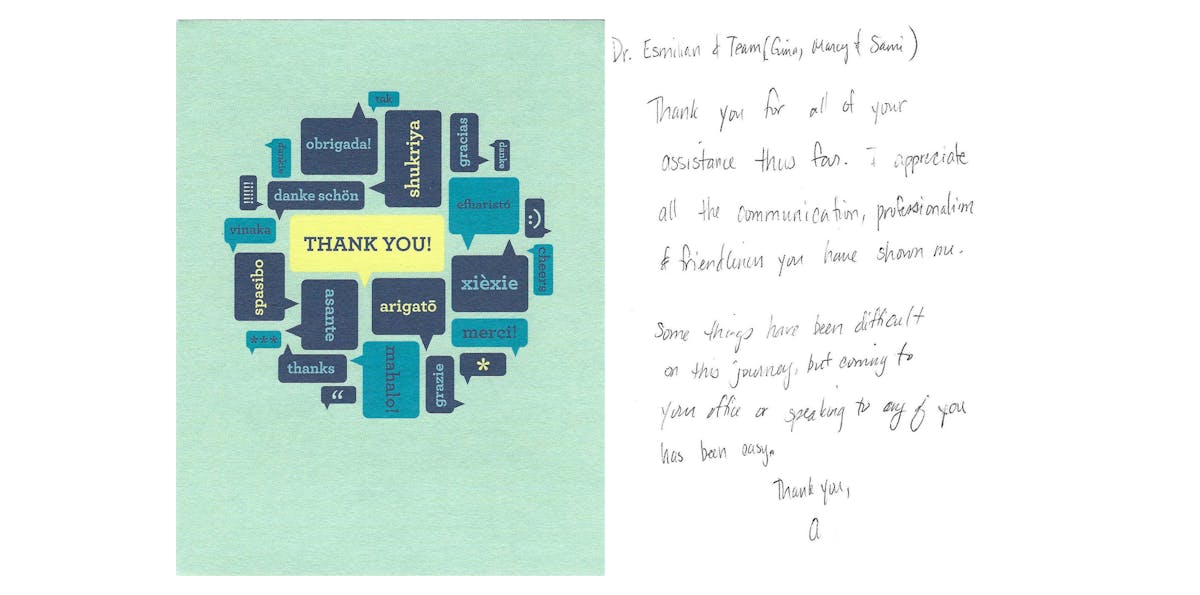 tak
obrigada!
shukriya
gracias
danke
dankie
!!!!!!
danke schön
efharistó
:)
vinaka
THANK YOU!
cheers
spasibo
asante
arigatō
xièxie
***
merci!
thanks
mahalo!
grazie
*
“
Dr. Esmilian & Team (Gina, Marcy & Sami)
Thank you for all of your
assistance thus far. I appreciate
all the communication, professionalism
& friendliness you have shown me.
Some things have been difficult
on this journey, but coming to
your office or speaking to any of you
has been easy.
Thank you,
a